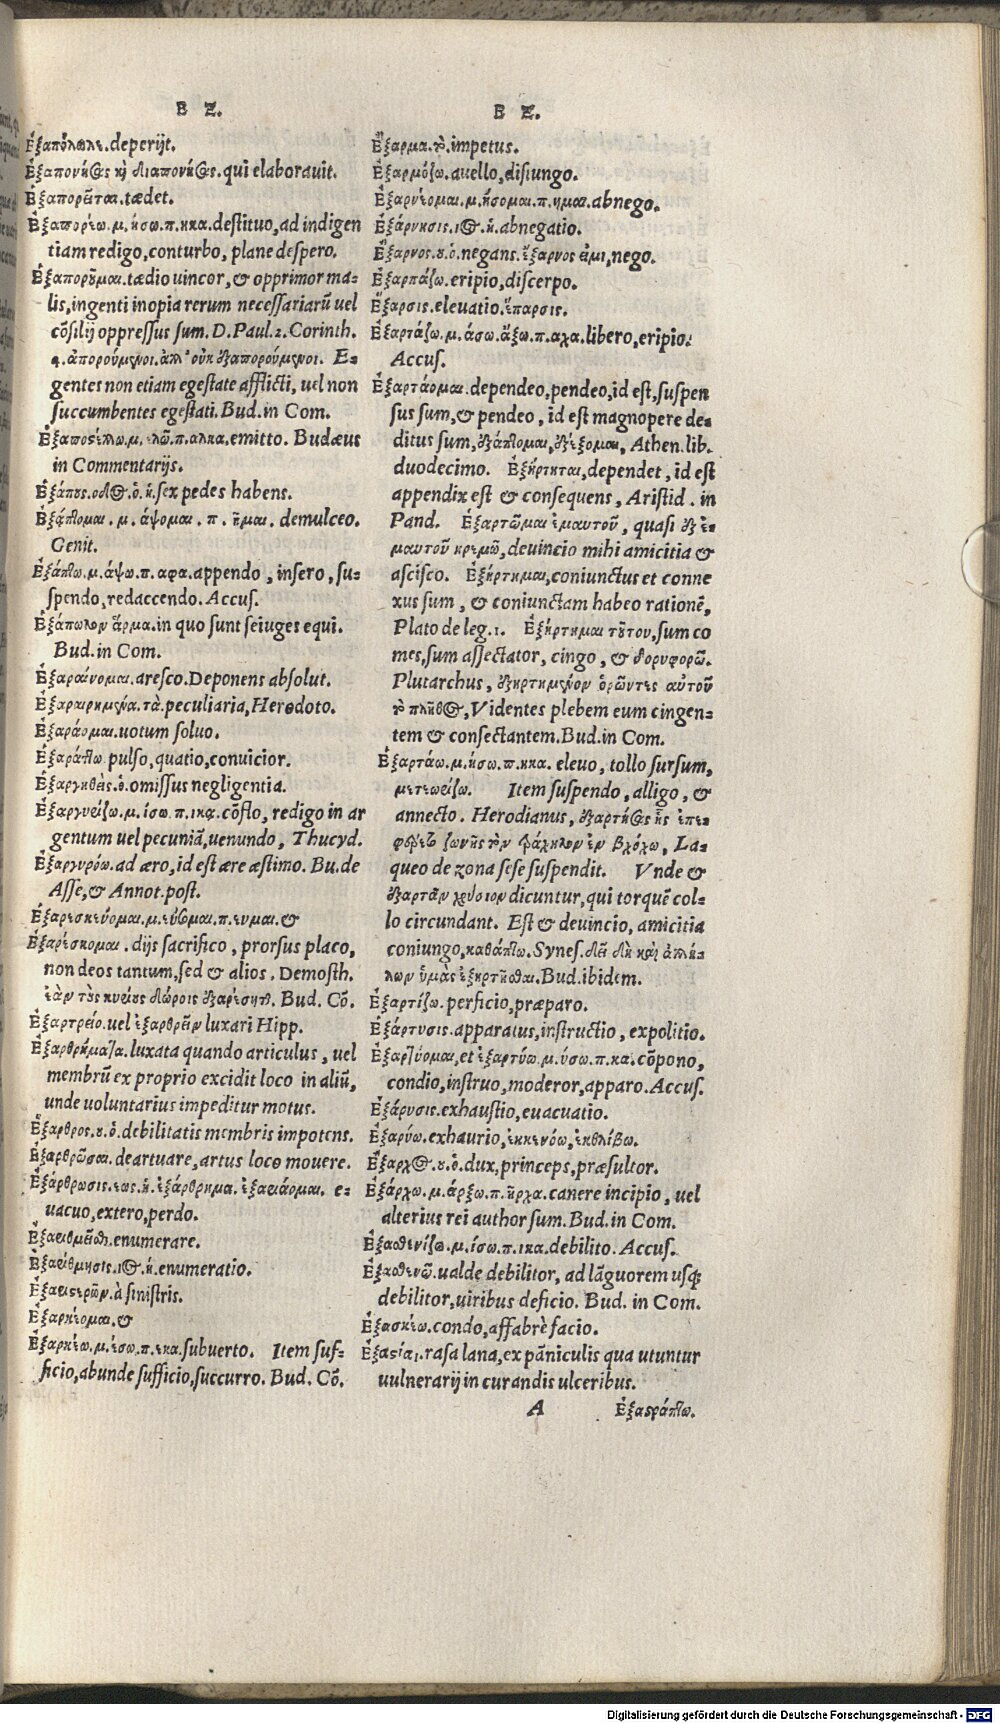 Ε Ζ.
Ἐξαπόλωλε. deperijt.
Ἐξαπονήσας καὶ διαπονήσας. qui elaborauit.
Ἐξαπορεῖται. tædet.
Ἐξαπορέω. μ. ήσω. π. ηκα. destituo, ad indigen
tiam redigo, conturbo, plane despero.
Ἐξαποροῦμαι. tædio uincor, & opprimor ma=
lis, ingenti inopia rerum necessariarū uel
cōsilij oppressus sum. D. Paul. 2. Corinth.
4. ἀπορούμενοι. ἀλλ' οὐκ ἐξαπορούμενοι. E=
gentes non etiam egestate afflicti, uel non
succumbentes egestati. Bud. in Com.
Ἐξαποστέλλω. μ. ελῶ. π. αλκα. emitto. Budæus
in Commentarijs.
Ἐξάπους. οδος. ὁ. ἡ. sex pedes habens.
Ἐξάπτομαι. μ. άψομαι. π. ῆμαι. demulceo.
Genit.
Ἐξάπτω. μ. άψω. π. αφα. appendo, insero, su=
spendo, redaccendo. Accus.
Ἐξάπωλον ἅρμα. in quo sunt seiuges equi.
Bud. in Com.
Ἐξαραίνομαι. aresco. Deponens absolut.
Ἐξαραιρημένα. τὰ. peculiaria, Herodoto.
Ἐξαράομαι. uotum soluo.
Ἐξαράττω. pulso, quatio, conuicior.
Ἐξαργηθεὶς. ὁ. omissus negligentia.
Ἐξαργυρίζω. μ. ίσω. π. ικα. cōflo, redigo in ar
gentum uel pecuniā, uenundo, Thucyd.
Ἐξαργυρόω. ad æro, id est ære æstimo. Bu. de
Asse, & Annot. post.
Ἐξαρεσκεύομαι. μ. εύσομαι. π. ευμαι. &
Ἐξαρέσκομαι. dijs sacrifico, prorsus placo,
non deos tantum, sed & alios. Demosth.
ἐὰν τοὺς κυρίους δώροις ἐξαρέσηται. Bud. Cō.
Ἐξαρτρείο. uel ἐξαρθρεῖν luxari Hipp.
Ἐξαρθρήματα. luxata quando articulus, uel
membrū ex proprio excidit loco in aliū,
unde uoluntarius impeditur motus.
Ἔξαρθρος. ου. ὁ. debilitatis membris impotens.
Ἐξαρθρῶσαι. deartuare, artus loco mouere.
Ἐξάρθρωσις. εως. ἡ. ἐξάρθρημα. ἐξαριάομαι. e=
uacuo, extero, perdo.
Ἐξαριθμεῖσθαι. enumerare.
Ἐξαρίθμησις. ιος. ἡ. enumeratio.
Ἐξαριστερῶν. à sinistris.
Ἐξαρκέομαι. &
Ἐξαρκέω. μ. έσω. π. εκα. subuerto. Item suf=
ficio, abunde sufficio, succurro. Bud. Cō.
Ε Ζ.
Ἔξαρμα. τὸ. impetus.
Ἐξαρμόζω. auello, disiungo.
Ἐξαρνέομαι. μ. ήσομαι. π. ημαι. abnego.
Ἐξάρνησις. ιος. ἡ. abnegatio.
Ἔξαρνος. ου. ὁ. negans. ἔξαρνος εἰμι, nego.
Ἐξαρπάζω. eripio, discerpo.
Ἔξαρσις. eleuatio. ἔπαρσις.
Ἐξαρτάζω. μ. άσω. άξω. π. αχα. libero, eripio.
Accus.
Ἐξαρτάομαι. dependeo, pendeo, id est, suspen
sus sum, & pendeo, id est magnopere de=
ditus sum, ἐξάπτομαι, ἐξέχομαι, Athen. lib.
duodecimo. Ἐξήρτηται, dependet, id est
appendix est & consequens, Aristid. in
Pand. Ἐξαρτῶμαι ἐμαυτοῦ, quasi ἐξ ἐ=
μαυτοῦ κρεμῶ, deuincio mihi amicitia &
ascisco. Ἐξήρτημαι, coniunctus et conne
xus sum, & coniunctam habeo rationē,
Plato de leg. 1. Ἐξήρτημαι τούτου, sum co
mes, sum assectator, cingo, & δορυφορῶ.
Plutarchus, ἐξηρτημένον ὁρῶντες αὐτοῦ
τὸ πλῆθος, Videntes plebem eum cingen=
tem & consectantem. Bud. in Com.
Ἐξαρτάω. μ. ήσω. π. ηκα. eleuo, tollo sursum,
μετεωρίζω. Item suspendo, alligo, &
annecto. Herodianus, ἐξαρτήσας ἧς ἐπε=
φέρετο ζώνης τὸν τράχηλον ἐν βρόχῳ, La=
queo de zona sese suspendit. Vnde &
ἐξαρτᾶν χρύσιον dicuntur, qui torquē col=
lo circundant. Est & deuincio, amicitia
coniungo, καθάπτω. Synes. δεῖ δὴ καὶ ἀλλή=
λων ὑμᾶς ἐξηρτῆσθαι. Bud. ibidem.
Ἐξαρτίζω. perficio, præparo.
Ἐξάρτυσις. apparatus, instructio, expolitio.
Ἐξαρτύομαι, et ἐξαρτύω. μ. ύσω. π. κα. cōpono,
condio, instruo, moderor, apparo. Accus.
Ἐξάρυσις. exhaustio, euacuatio.
Ἐξαρύω. exhaurio, ἐκκενόω, ἐκθλίβω.
Ἔξαρχος. ου. ὁ. dux, princeps, præsultor.
Ἐξάρχω. μ. άρξω. π. ῆρχα. canere incipio, uel
alterius rei author sum. Bud. in Com.
Ἐξασθενίζω. μ. ίσω. π. ικα. debilito. Accus.
Ἐξασθενῶ. ualde debilitor, ad lāguorem usq;
debilitor, uiribus deficio. Bud. in Com.
Ἐξασκέω. condo, affabrè facio.
Ἐξαστία. rasa lana, ex pāniculis qua utuntur
uulnerarij in curandis ulceribus.
A Ἐξαστράπτω.
Digitalisierung gefördert durch die Deutsche Forschungsgemeinschaft - DFG